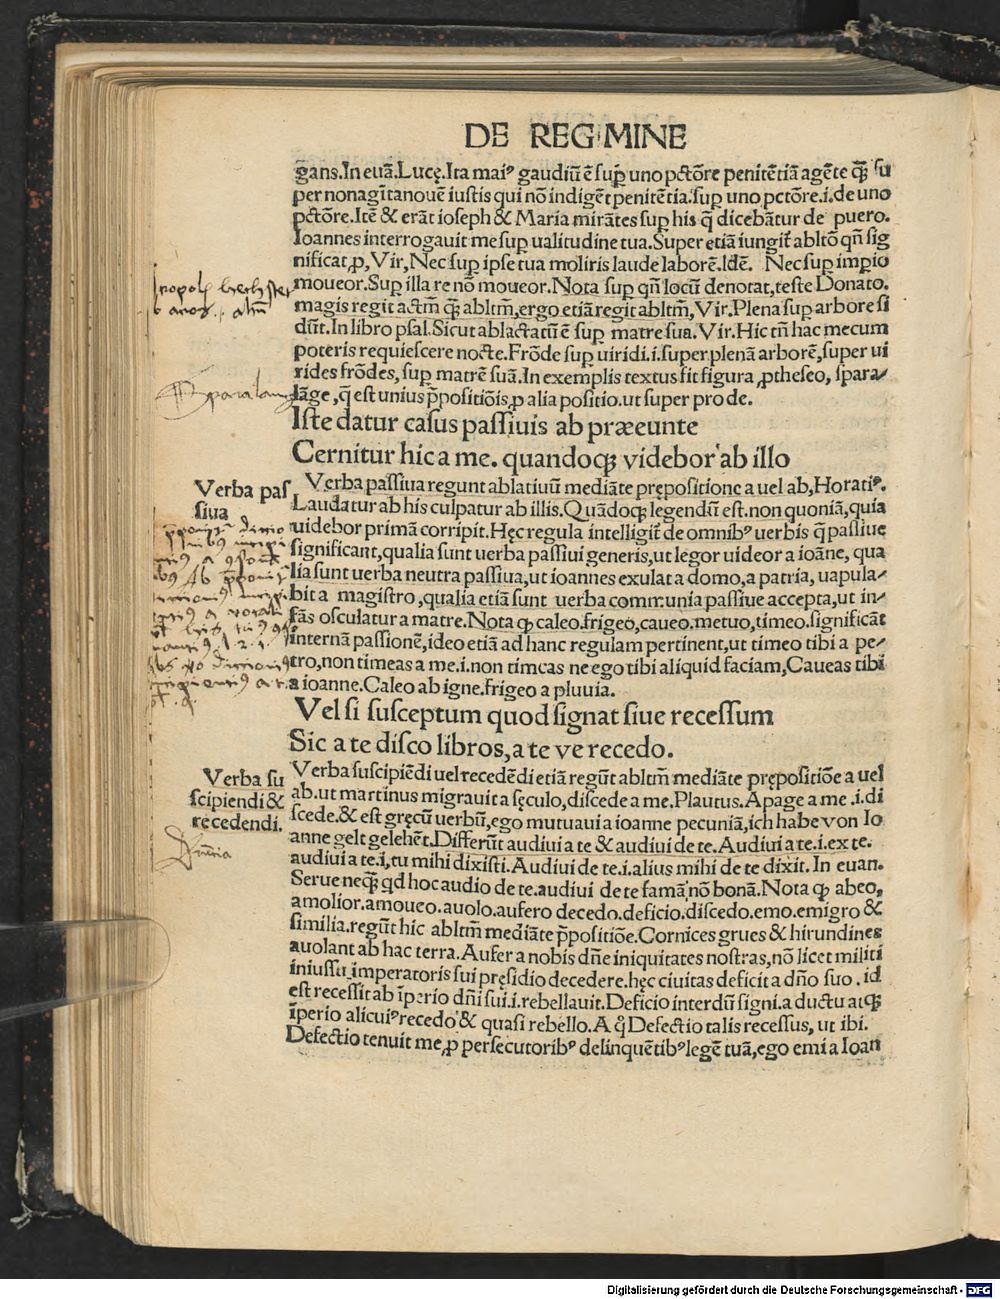 DE REGIMINE
g̃ans.In euã.Lucę.Ita maiꝰ gaudiũ ẽ suꝑ uno pctõre penitẽtiã agẽte q̃ꝫ su
per nonagĩtanouẽ iustis qui nõ indigẽt penitẽtia.suꝑ uno pctõre.i.de uno
pctõre.Itẽ & erãt ioseph & Maria mirãtes suꝑ his q̃ dicebãtur de puero.
Ioannes interrogauit me suꝑ ualitudine tua.Super etiã iungit̃ abltõ qñ sig
nificat ,ꝓ, Vir, Nec suꝑ ipse tua moliris laude laborẽ.Idẽ. Nec suꝑ imꝑio
moueor.Suꝑ illa re nõ moueor.Nota suꝑ qñ locũ denotat,teste Donato.
magis regit actm̃ q̃ꝫ abltm̃,ergo etiã regit abltm̃, Vir.Plena suꝑ arbore si
dũt.In libro psal.Sicut ablactatũ ẽ suꝑ matre sua.Vir.Hic tñ hac mecum
poteris requiescere nocte.Frõde suꝑ uiridi.i.super plenã arborẽ,super ui
rides frõdes, suꝑ matrẽ suã.In exemplis textus fit figura ,ꝓtheseo, spara/
lãge ,q̃ est unius p̃positiõis,ꝓ alia positio.ut super pro de.
Iste datur casus passiuis ab præeunte
Cernitur hic a me. quandoqꝫ videbor ab illo
Verba pas
siua
Verba passiua regunt ablatiuũ mediãte prępositione a uel ab,Horatiꝰ.
Laudatur ab his culpatur ab illis.Quãdoqꝫ legendũ est.non quoniã,quia
uidebor primã corripit.Hęc regula intelligit̃ de omnibꝰ uerbis q̃ passiue
significant,qualia sunt uerba passiui generis,ut legor uideor a ioãne, qua
lia sunt uerba neutra passiua,ut ioannes exulat a domo,a patria, uapula/
bit a magistro ,qualia etiã sunt uerba communia passiue accepta,ut in/
fãs osculatur a matre.Nota ꝙ caleo.frigeo,caueo.metuo,timeo.significãt
internã passionẽ,ideo etiã ad hanc regulam pertinent,ut timeo tibi a pe/
tro,non timeas a me.i.non timeas ne ego tibi aliquid faciam,Caueas tibi
a ioanne.Caleo ab igne.frigeo a pluuia.
Vel si susceptum quod signat siue recessum
Sic a te disco libros,a te ve recedo.
Verba su
scipiendi &
recedendi.
Verba suscipiẽdi uel recedẽdi etiã regũt abltm̃ mediãte prępositiõe a uel
ab.ut martinus migrauit a sęculo,discede a me.Plautus.Apage a me .i.di
scede.& est gręcũ uerbũ,ego mutuaui a ioanne pecuniã,ich habe von Io
anne gelt gelehẽt.Differũt audiui a te & audiui de te.Audiui a te.i.ex te.
audiui a te.i,tu mihi dixisti.Audiui de te.i.alius mihi de te dixit. In euan.
Serue neq̃ꝫ qd hoc audio de te.audiui de te famã nõ bonã.Nota ꝙ abeo,
amolior.amoueo.auolo.aufero decedo.deficio.discedo.emo.emigro &
similia.regũt hic abltm̃ mediãte p̃positiõe.Cornices grues & hirundines
auolant ab hac terra.Aufer a nobis dñe iniquitates nostras,nõ licet militi
iniussu imperatoris sui pręsidio decedere.hęc ciuitas deficit a dño suo . id
est recessit ab ĩperio dñi sui.i.rebellauit.Deficio interdũ signi.a ductu atqꝫ
ĩperio alicuiꝰ recedo & quasi rebello.A q̃ Defectio talis recessus, ut ibi.
Defectio tenuit me,ꝓ persecutoribꝰ delinquẽtibꝰ legẽ tuã,ego emi a Ioan
Digitalisierung gefördert durch die Deutsche Forschungsgemeinschaft - DFG